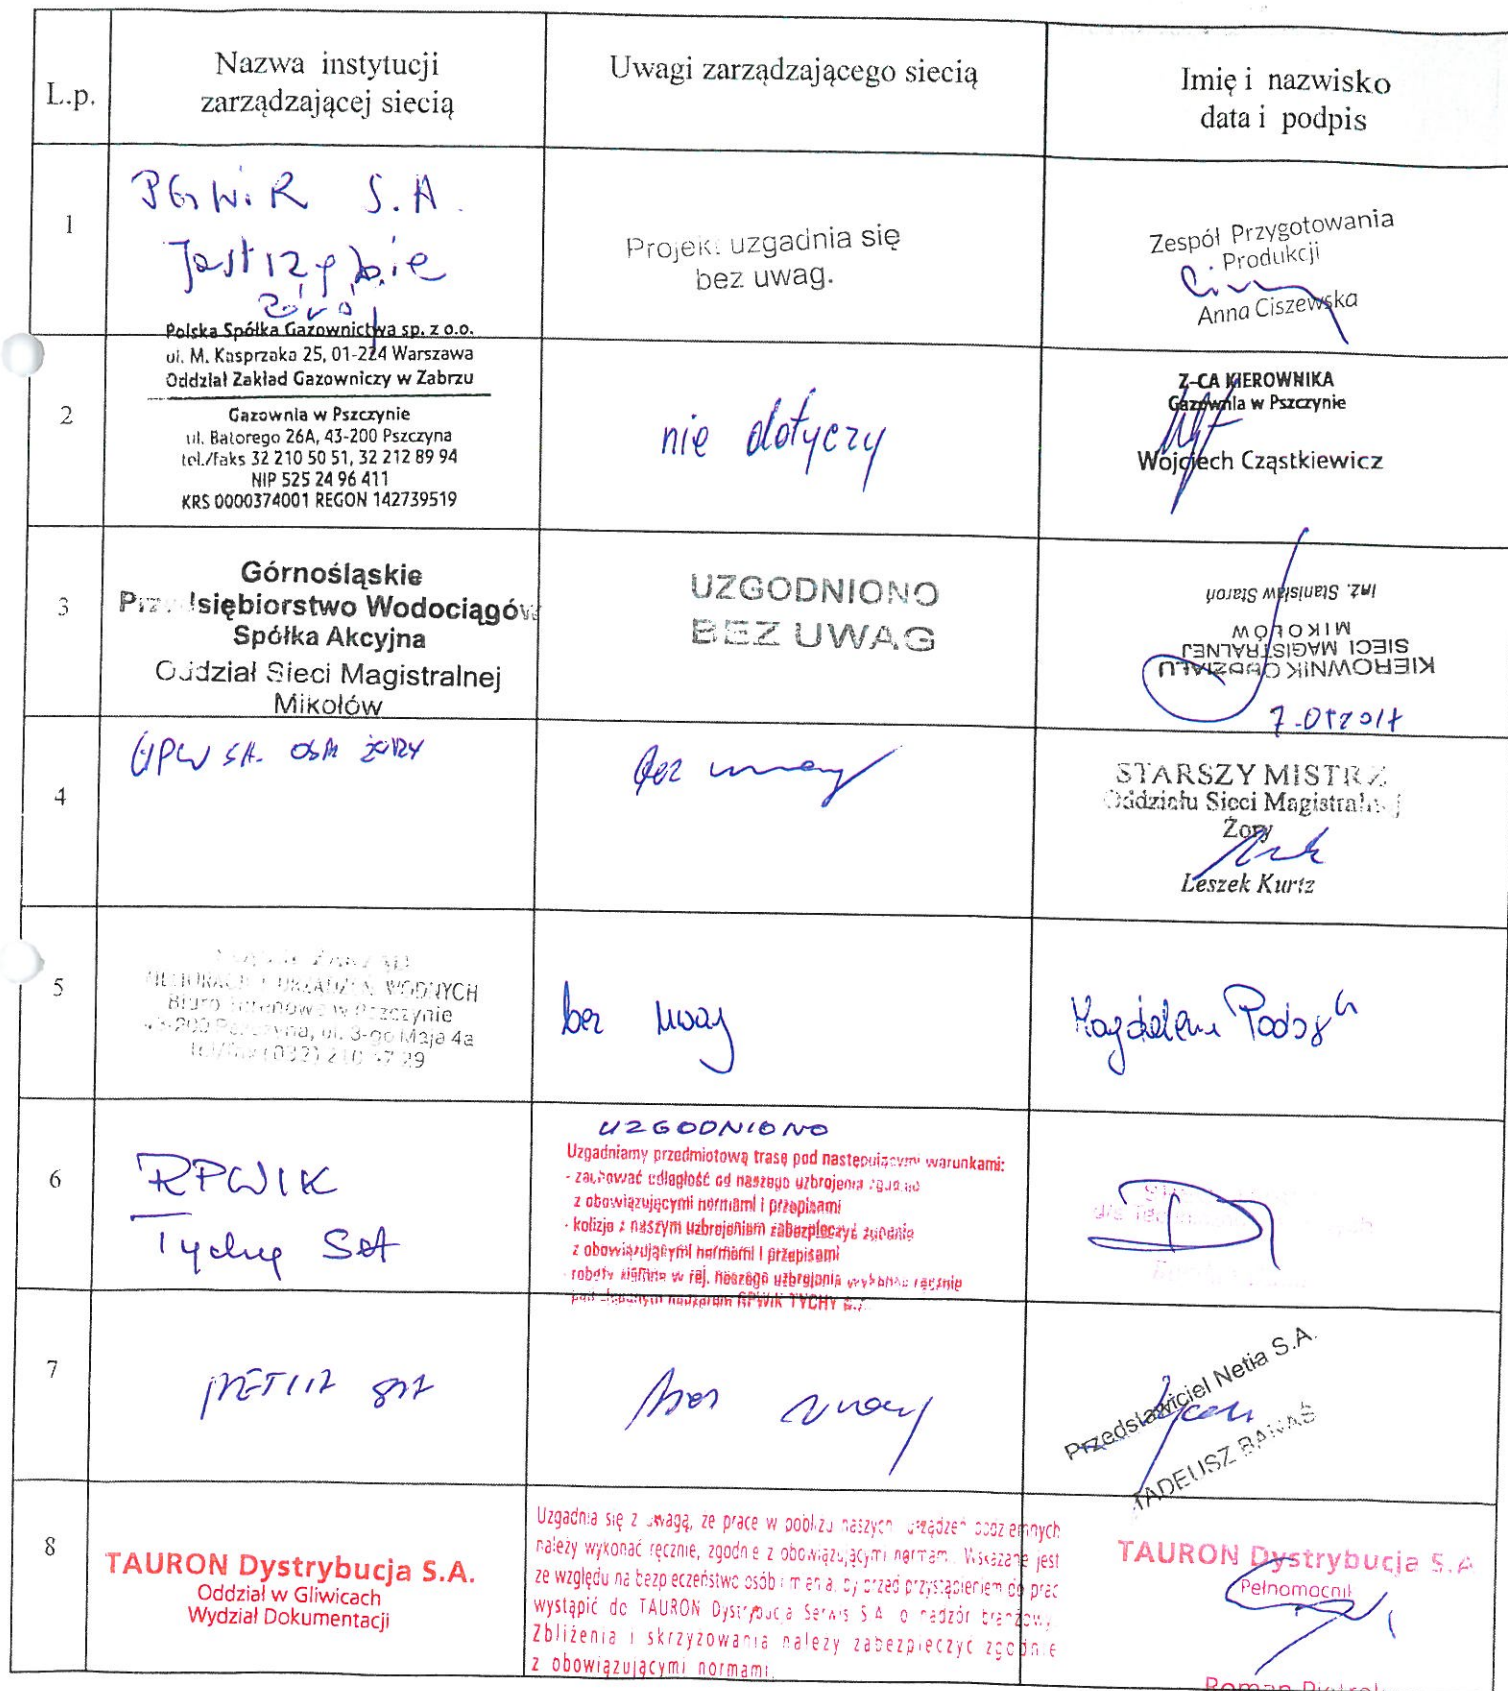 L.p.
Nazwa instytucji
zarządzającej siecią
Uwagi zarządzającego siecią
Imię i nazwisko
data i podpis
1
PGWiR S.A.
Jastrzębie
Zdrój
Projekt uzgadnia się
bez uwag.
Zespół Przygotowania
Produkcji
Anna Ciszewska
2
Polska Spółka Gazownictwa sp. z o.o.
ul. M. Kasprzaka 25, 01-224 Warszawa
Oddział Zakład Gazowniczy w Zabrzu
Gazownia w Pszczynie
ul. Batorego 26A, 43-200 Pszczyna
tel./faks 32 210 50 51, 32 212 89 94
NIP 525 24 96 411
KRS 0000374001 REGON 142739519
nie dotyczy
Z-CA KIEROWNIKA
Gazownia w Pszczynie
Wojciech Cząstkiewicz
3
Górnośląskie
Przedsiębiorstwo Wodociągów
Spółka Akcyjna
Oddział Sieci Magistralnej
Mikołów
UZGODNIONO
BEZ UWAG
KIEROWNIK ODDZIAŁU
SIECI MAGISTRALNEJ
MIKOŁÓW
inż. Stanisław Staroń
4
GPW SA. OSM ŻORY
bez uwag
STARSZY MISTRZ
Oddziału Sieci Magistralnej
Żory
Leszek Kurtz
5
MELIORACJI I URZĄDZEŃ WODNYCH
Biuro Terenowe w Pszczynie
43-200 Pszczyna, ul. 3-go Maja 4a
bez uwag
Magdalena
6
RPWIK
Tychy SA
UZGODNIONO
Uzgadniamy przedmiotową trasę pod następującymi warunkami:
- zachować odległość od naszego uzbrojenia zgodnie
z obowiązującymi normami i przepisami
- kolizje z naszym uzbrojeniem zabezpieczyć zgodnie
z obowiązującymi normami i przepisami
- roboty ziemne w rej. naszego uzbrojenia wykonać ręcznie
pod nadzorem RPWIK TYCHY S.A.
7
NETIA SA
bez uwag
Przedstawiciel Netia S.A.
TADEUSZ BANAŚ
8
TAURON Dystrybucja S.A.
Oddział w Gliwicach
Wydział Dokumentacji
Uzgadnia się z uwagą, że prace w pobliżu naszych urządzeń podziemnych
należy wykonać ręcznie, zgodnie z obowiązującymi normami. Wskazane jest
ze względu na bezpieczeństwo osób i mienia, by przed przystąpieniem do prac
wystąpić do TAURON Dystrybucja Serwis S.A. o nadzór branżowy.
Zbliżenia i skrzyżowania należy zabezpieczyć zgodnie
z obowiązującymi normami.
TAURON Dystrybucja S.A.
Pełnomocnik
Roman